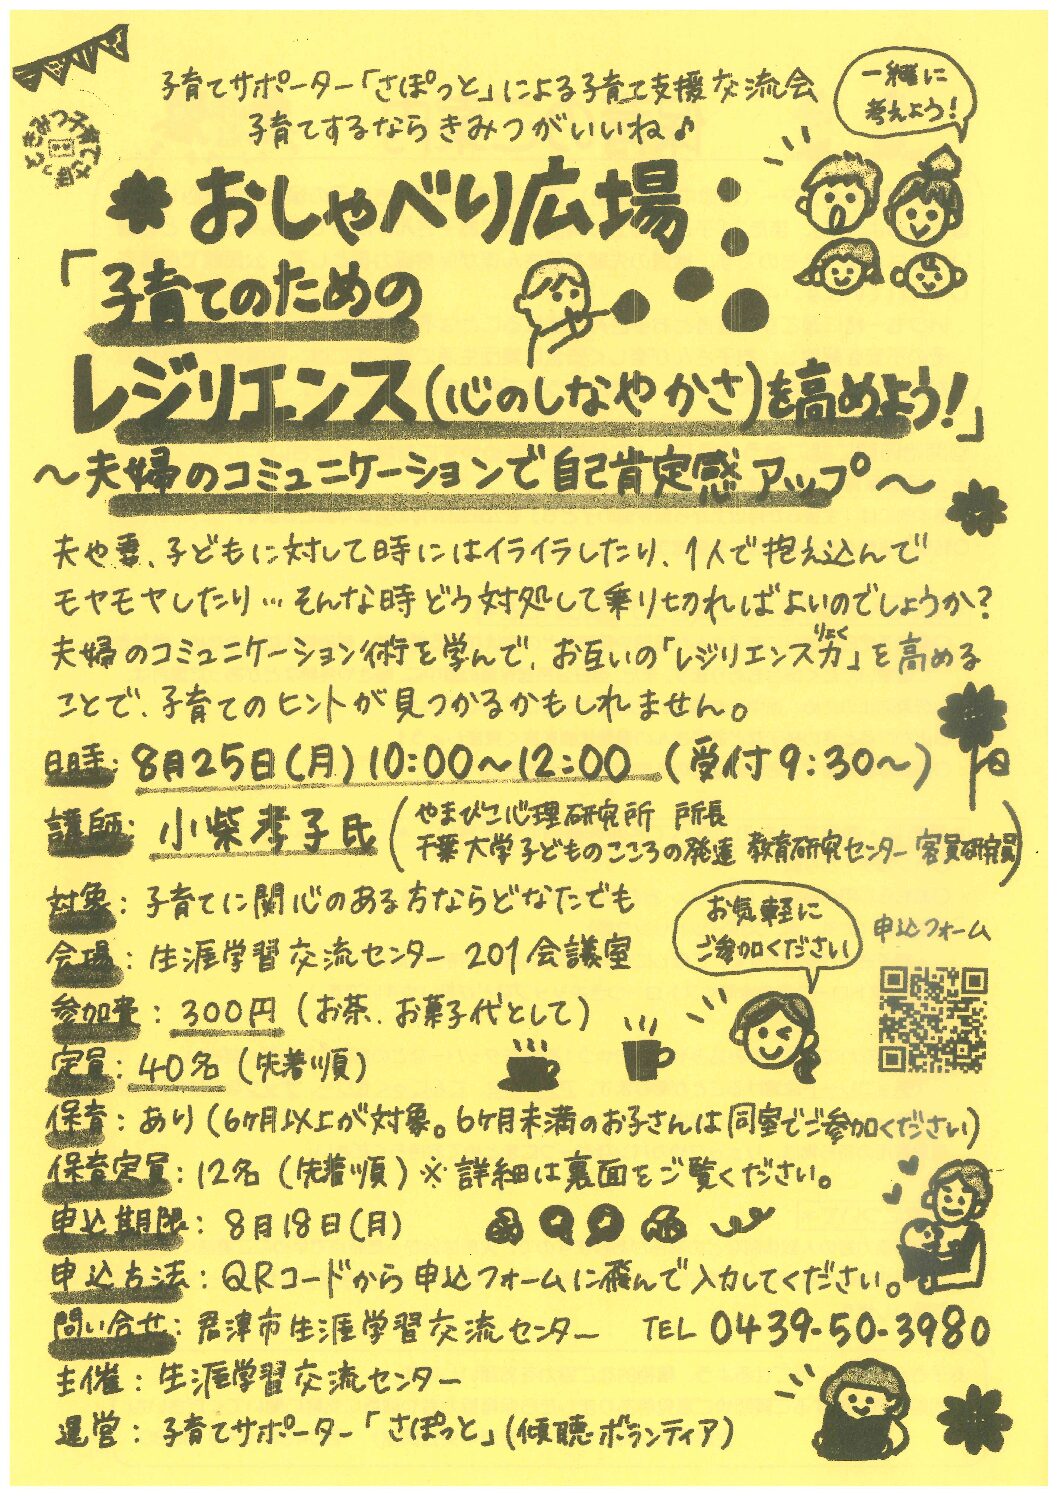 子育てサポーター「さぽっと」による子育て支援交流会
子育てするならきみつがいいね♪
一緒に
考えよう!
おしゃべり広場
「子育てのための
レジリエンス(心のしなやかさ)を高めよう!」
～夫婦のコミュニケーションで自己肯定感アップ～
夫や妻、子どもに対して時にはイライラしたり、1人で抱え込んで
モヤモヤしたり…そんな時どう対処して乗り切ればよいのでしょうか?
夫婦のコミュニケーション術を学んで、お互いの「レジリエンス力」を高める
りょく
ことで、子育てのヒントが見つかるかもしれません。
日時:8月25日(月)10:00～12:00 (受付9:30～)
講師:小柴孝子氏(やまびこ心理研究所 所長
千葉大学子どものこころの発達 教育研究センター 客員研究員)
対象:子育てに関心のある方ならどなたでも
会場:生涯学習交流センター 201会議室
お気軽に
ご参加ください
申込フォーム
参加費:300円(お茶、お菓子代として)
定員:40名(先着順)
保育:あり(6ヶ月以上が対象。6ヶ月未満のお子さんは同室でご参加ください)
保育定員:12名(先着順)※詳細は裏面をご覧ください。
申込期限:8月18日(月)
申込方法:QRコードから申込フォームに飛んで入力してください。
問い合せ:君津市生涯学習交流センター TEL 0439-50-3980
主催:生涯学習交流センター
運営:子育てサポーター「さぽっと」(傾聴ボランティア)